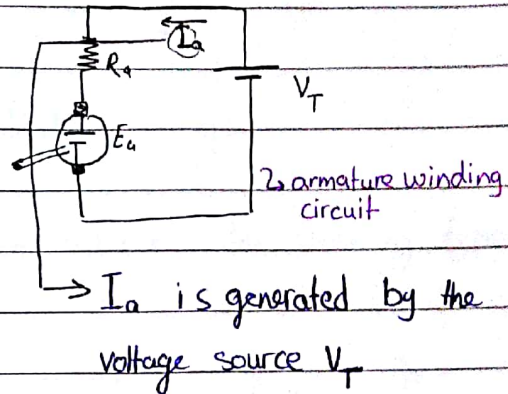 Ia
Ra
VT
Ea
↳ armature winding
circuit
→ Ia is generated by the
voltage source VT